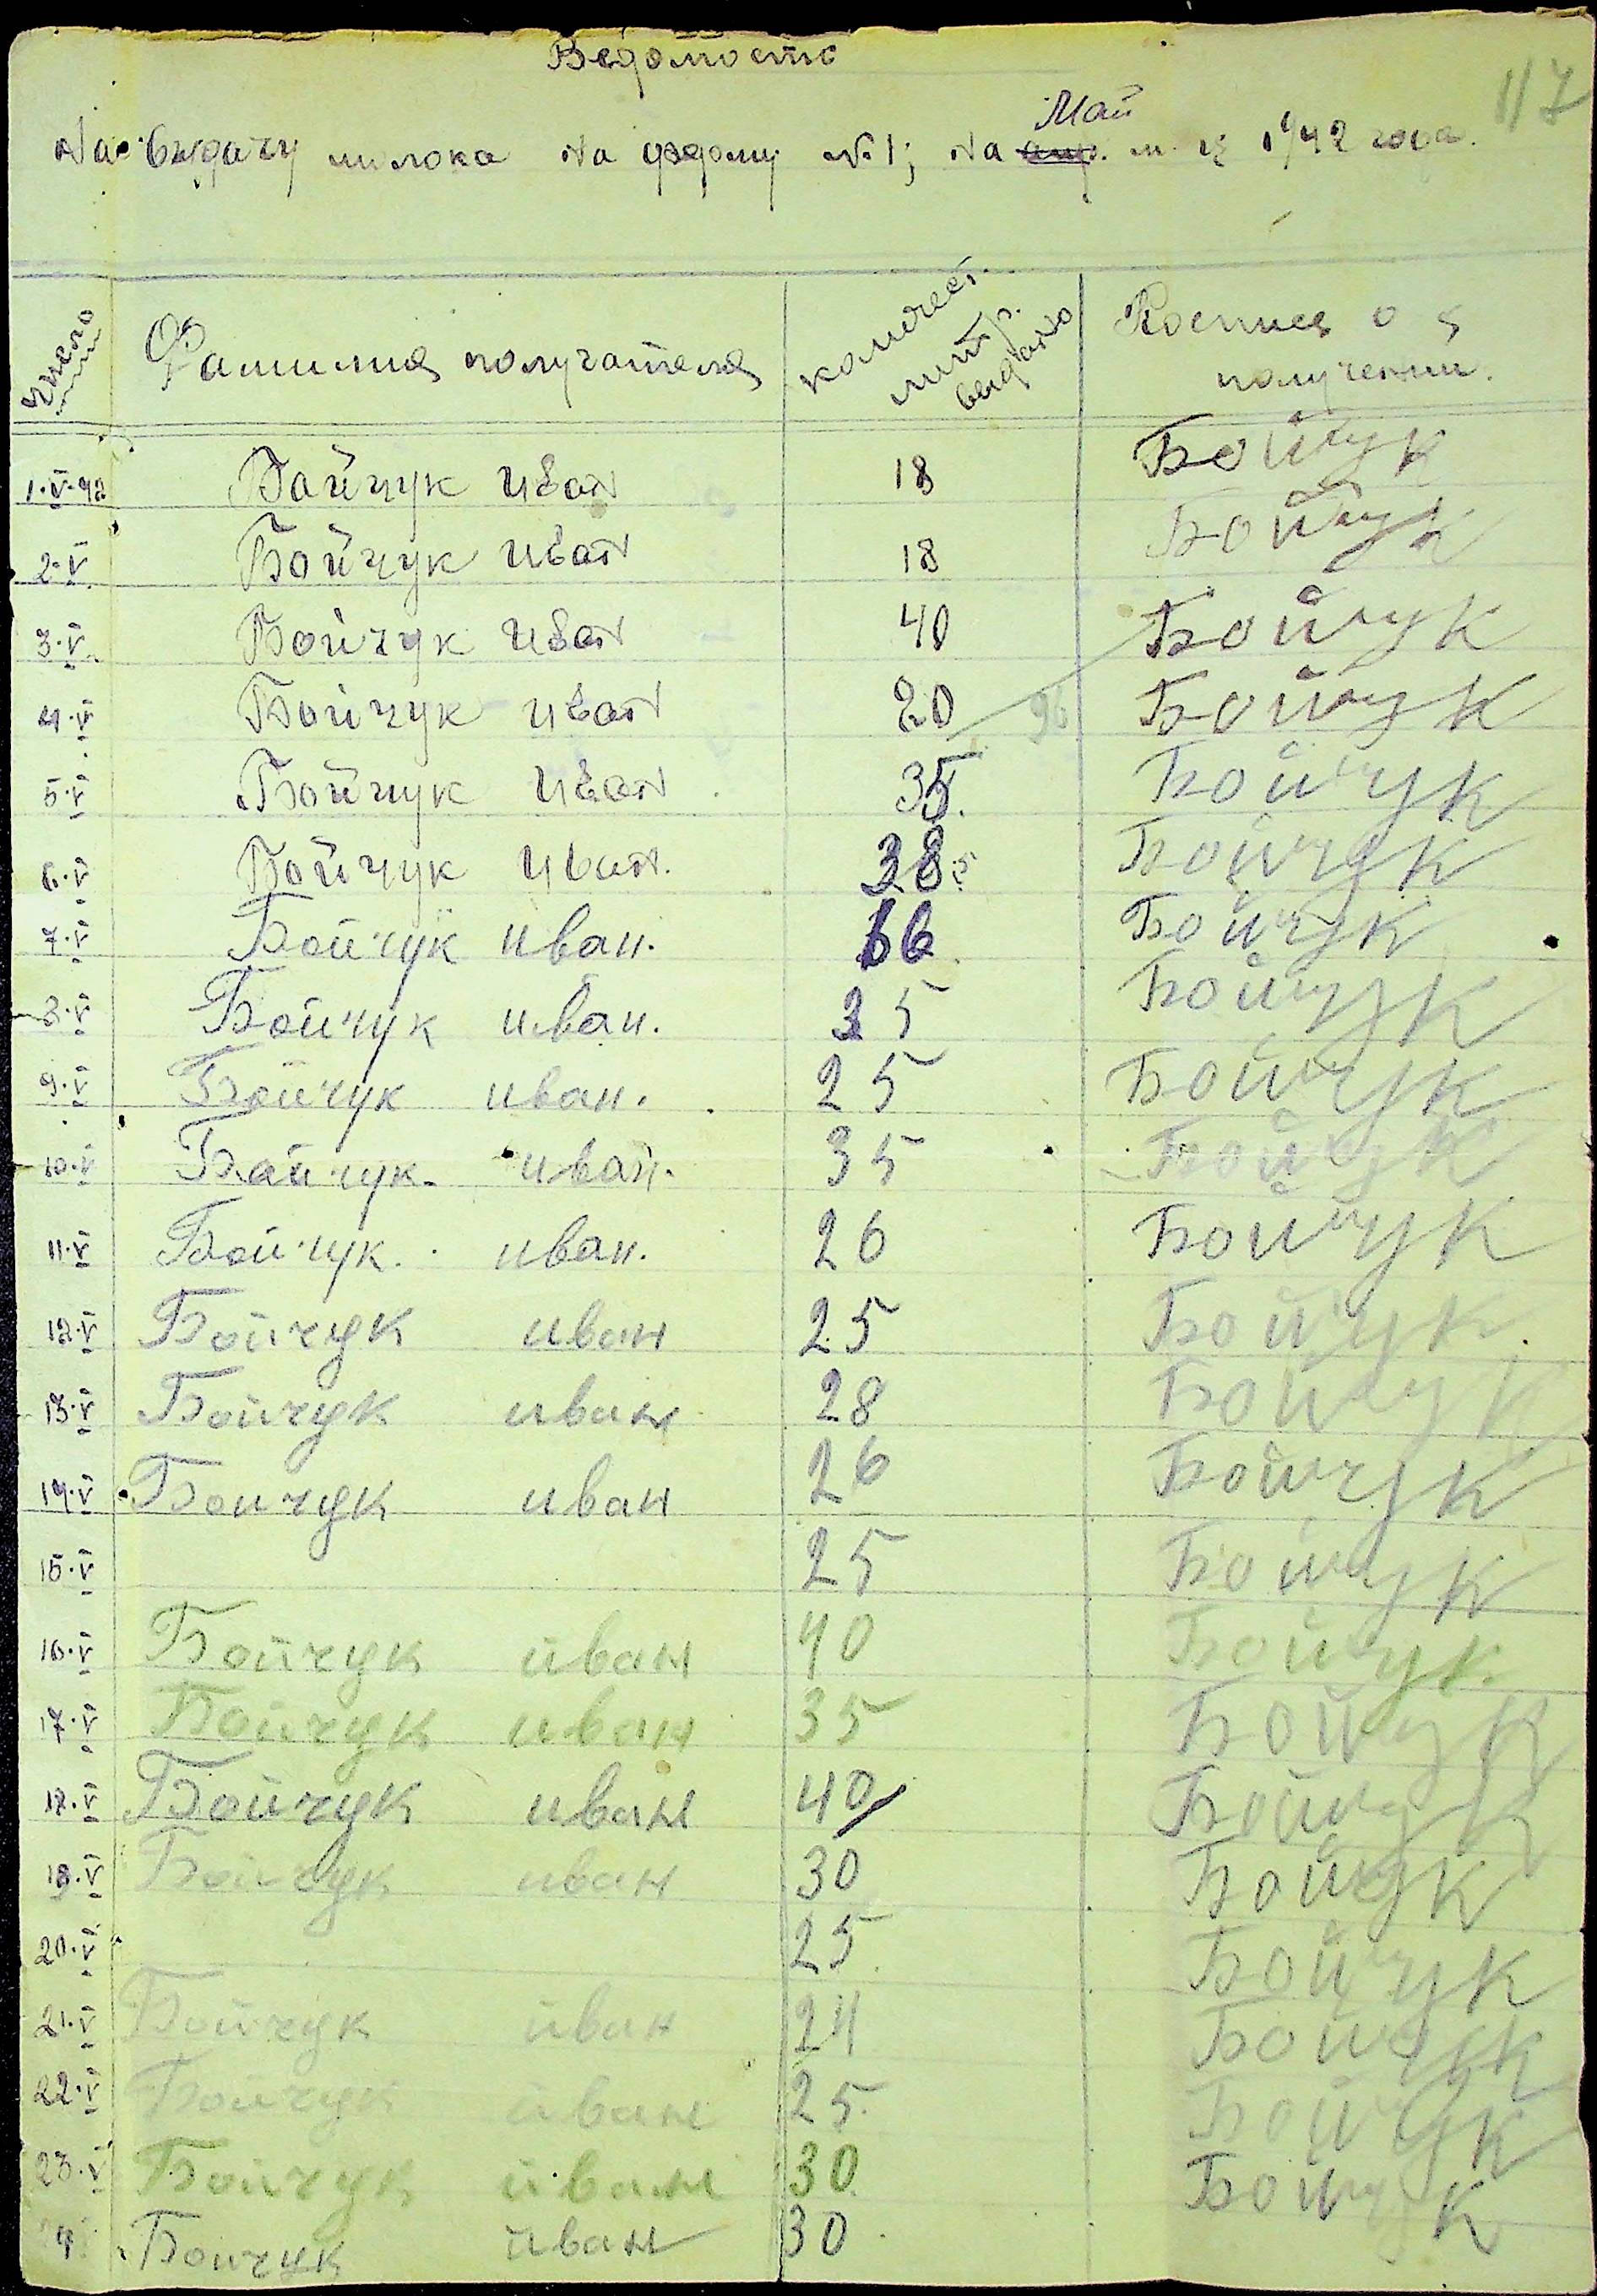 Ведомость
117
Май
На выдачу молока на ферму №1; на апр. м-ц 1942 года.
Число
Фамилия получателя
количест. литр. выдано
Роспись о
получении.
1.V.42 Бойчук Иван 18 Бойчук
2.V Бойчук Иван 18 Бойчук
3.V. Бойчук Иван 40 Бойчук
4.V Бойчук Иван 20 96 Бойчук
5.V Бойчук Иван 35. Бойчук
6.V Бойчук Иван. 38.5 Бойчук
7.V Бойчук иван. 66 Бойчук
8.V Бойчук иван. 35 Бойчук
9.V Бойчук иван. 25 Бойчук
10.V Бойчук. иван. 35 Бойчук
11.V Бойчук. иван. 26 Бойчук
12.V Бойчук иван 25 Бойчук
13.V Бойчук иван 28 Бойчук
14.V Бойчук иван 26 Бойчук
15.V 25 Бойчук
16.V Бойчук иван 40 Бойчук
17.V Бойчук иван 35 Бойчук
18.V Бойчук иван 40 Бойчук
19.V Бойчук иван 30 Бойчук
20.V 25 Бойчук
21.V Бойчук иван 24 Бойчук
22.V Бойчук иван 25. Бойчук
23.V Бойчук иван 30. Бойчук
Бойчук иван 30